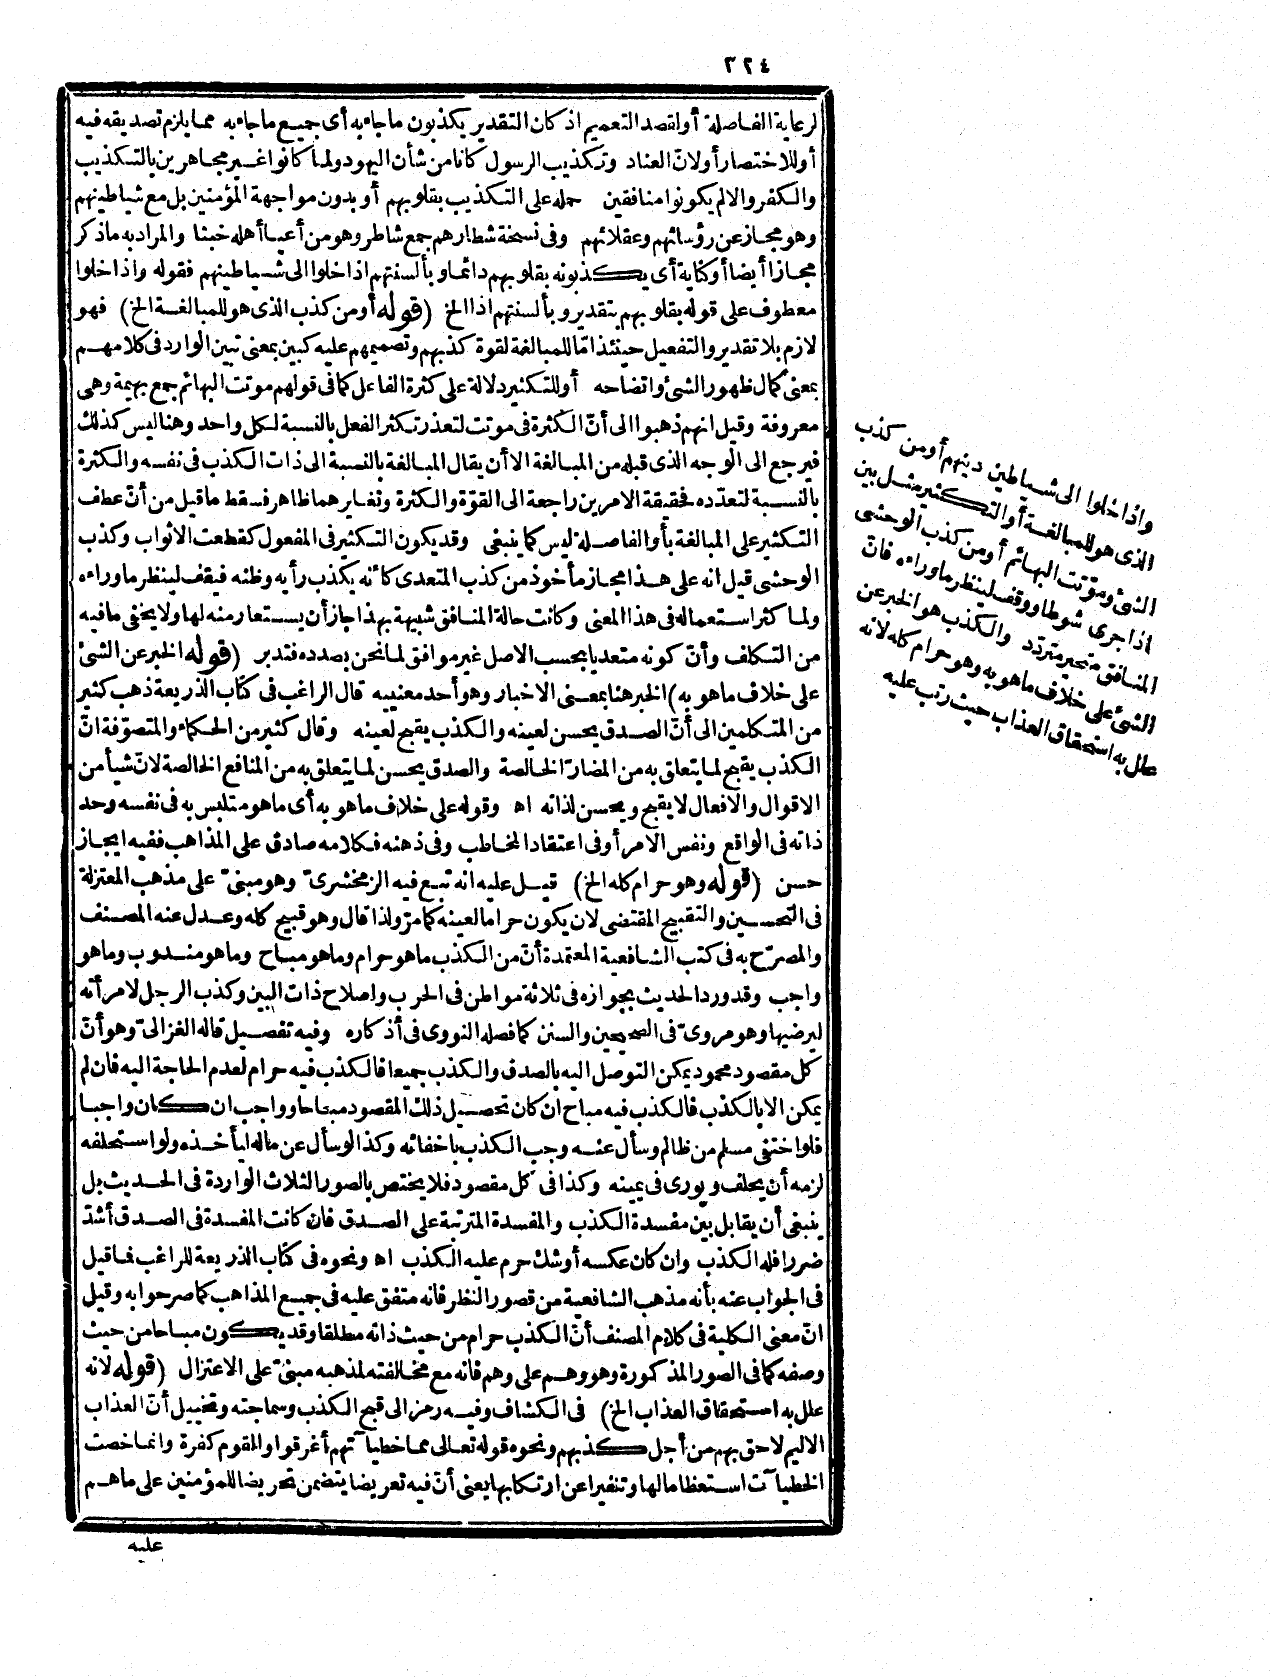 ٣٢٤
لرعاية الفاصلة أولقصد التعميم اذ كان التقدير يكذبون ما جاء به أى جميع ما جاء به مما يلزم تصديقه فيه
أوللاختصار أولانّ العناد وتكذيب الرسول كانا من شأن اليهود ولما كانوا غير مجاهرين بالتكذيب
والكفر والا لم يكونوا منافقين حمله على التكذيب بقلوبهم أو بدون مواجهة المؤمنين بل مع شياطينهم
وهو مجاز عن رؤسائهم وعقلائهم وفى نسخة شطارهم جمع شاطر وهو من أعيا أهله خبثا والمراد به ما ذكر
مجازا أيضا أو كناية أى يكذبونه بقلوبهم دائما وبألسنتهم اذا خلوا الى شياطينهم فقوله واذا خلوا
معطوف على قوله بقلوبهم بتقدير وبألسنتهم اذا الخ (قوله أو من كذب الذى هو للمبالغة الخ) فهو
لازم بلا تقدير والتفعيل حينئذ امّا للمبالغة لقوة كذبهم وتصميمهم عليه كبين بمعنى تبين الوارد فى كلامهم
بمعنى كمال ظهور الشئ واتضاحه أو للتكثير دلالة على كثرة الفاعل كما فى قولهم موتت البهائم جمع بهيمة وهى
معروفة وقيل انهم ذهبوا الى أنّ الكثرة فى موتت لتعذر تكثر الفعل بالنسبة لكل واحد وهنا ليس كذلك
فيرجع الى الوجه الذى قبله من المبالغة الا أن يقال المبالغة بالنسبة الى ذات الكذب فى نفسه والكثرة
بالنسبة لتعدّده فحقيقة الامرين راجعة الى القوّة والكثرة وتغايرهما ظاهر فسقط ما قيل من أنّ عطف
التكثير على المبالغة بأو الفاصلة ليس كما ينبغى وقد يكون التكثير فى المفعول كقطعت الاثواب وكذب
الوحشى قيل انه على هذا مجاز مأخوذ من كذب المتعدى كأنه يكذب رأيه وظنه فيقف لينظر ما وراءه
ولما كثر استعماله فى هذا المعنى وكانت حالة المنافق شبيهة بهذا جاز أن يستعار منه لها ولا يخفى ما فيه
من التكلف وأنّ كونه متعديا بحسب الاصل غير موافق لما نحن بصدده فتدبر (قوله الخبر عن الشئ
على خلاف ما هو به) الخبر هنا بمعنى الاخبار وهو أحد معنييه قال الراغب فى كتاب الذريعة ذهب كثير
من المتكلمين الى أنّ الصدق يحسن لعينه والكذب يقبح لعينه وقال كثير من الحكماء والمتصوّفة انّ
الكذب يقبح لما يتعلق به من المضارّ الخالصة والصدق يحسن لما يتعلق به من المنافع الخالصة لانّ شيأ من
الاقوال والافعال لا يقبح ويحسن لذاته اه وقوله على خلاف ما هو به أى ما هو متلبس به فى نفسه وحد
ذاته فى الواقع ونفس الامر أو فى اعتقاد المخاطب وفى ذهنه فكلامه صادق على المذاهب ففيه ايجاز
حسن (قوله وهو حرام كله الخ) قيل عليه انه تبع فيه الزمخشرىّ وهو مبنىّ على مذهب المعتزلة
فى التحسين والتقبيح المقتضى لان يكون حراما لعينه كما مرّ ولذا قال وهو قبيح كله وعدل عنه المصنف
والمصرّح به فى كتب الشافعية المعتمدة أنّ من الكذب ما هو حرام وما هو مباح وما هو مندوب وما هو
واجب وقد ورد الحديث بجوازه فى ثلاثة مواطن فى الحرب واصلاح ذات البين وكذب الرجل لامرأته
ليرضيها وهو مروىّ فى الصحيحين والسنن كما فصله النووى فى أذكاره وفيه تفصيل قاله الغزالىّ وهو أنّ
كل مقصود محمود يمكن التوصل اليه بالصدق والكذب جميعا فالكذب فيه حرام لعدم الحاجة اليه فان لم
يمكن الا بالكذب فالكذب فيه مباح ان كان تحصيل ذلك المقصود مباحا وواجب ان كان واجبا
فلو اختفى مسلم من ظالم وسأل عنه وجب الكذب باخفائه وكذا لو سأل عن ماله ليأخذه ولو استحلفه
لزمه أن يحلف ويورى فى يمينه وكذا فى كل مقصود فلا يختص بالصور الثلاث الواردة فى الحديث بل
ينبغى أن يقابل بين مفسدة الكذب والمفسدة المترتبة على الصدق فان كانت المفسدة فى الصدق أشدّ
ضررا فله الكذب وان كان عكسه أو شك حرم عليه الكذب اه ونحوه فى كتاب الذريعة للراغب فما قيل
فى الجواب عنه بأنه مذهب الشافعية من قصور النظر فانه متفق عليه فى جميع المذاهب كما صرحوا به وقيل
انّ معنى الكلية فى كلام المصنف أنّ الكذب حرام من حيث ذاته مطلقا وقد يكون مباحا من حيث
وصفه كما فى الصور المذكورة وهو وهم على وهم فانه مع مخالفته لمذهبه مبنىّ على الاعتزال (قوله لانه
علل به استحقاق العذاب الخ) فى الكشاف وفيه رمز الى قبح الكذب وسماجته وتخييل أنّ العذاب
الاليم لاحق بهم من أجل كذبهم ونحوه قوله تعالى مما خطيآتهم أغرقوا والقوم كفرة وانما خصت
الخطيآت استعظاما لها وتنفيرا عن ارتكابها يعنى أنّ فيه تعريضا يتضمن تحريضا للمؤمنين على ما هم
عليه
واذا خلوا الى شياطين دينهم أو من كذب
الذى هو للمبالغة أو التكثير مثل بين
الشئ وموّتت البهائم أو من كذب الوحشى
اذا جرى شوطا ووقف لينظر ما وراءه فانّ
المنافق متحير متردّد والكذب هو الخبر عن
الشئ على خلاف ما هو به وهو حرام كله لانه
علل به استحقاق العذاب حيث رتب عليه